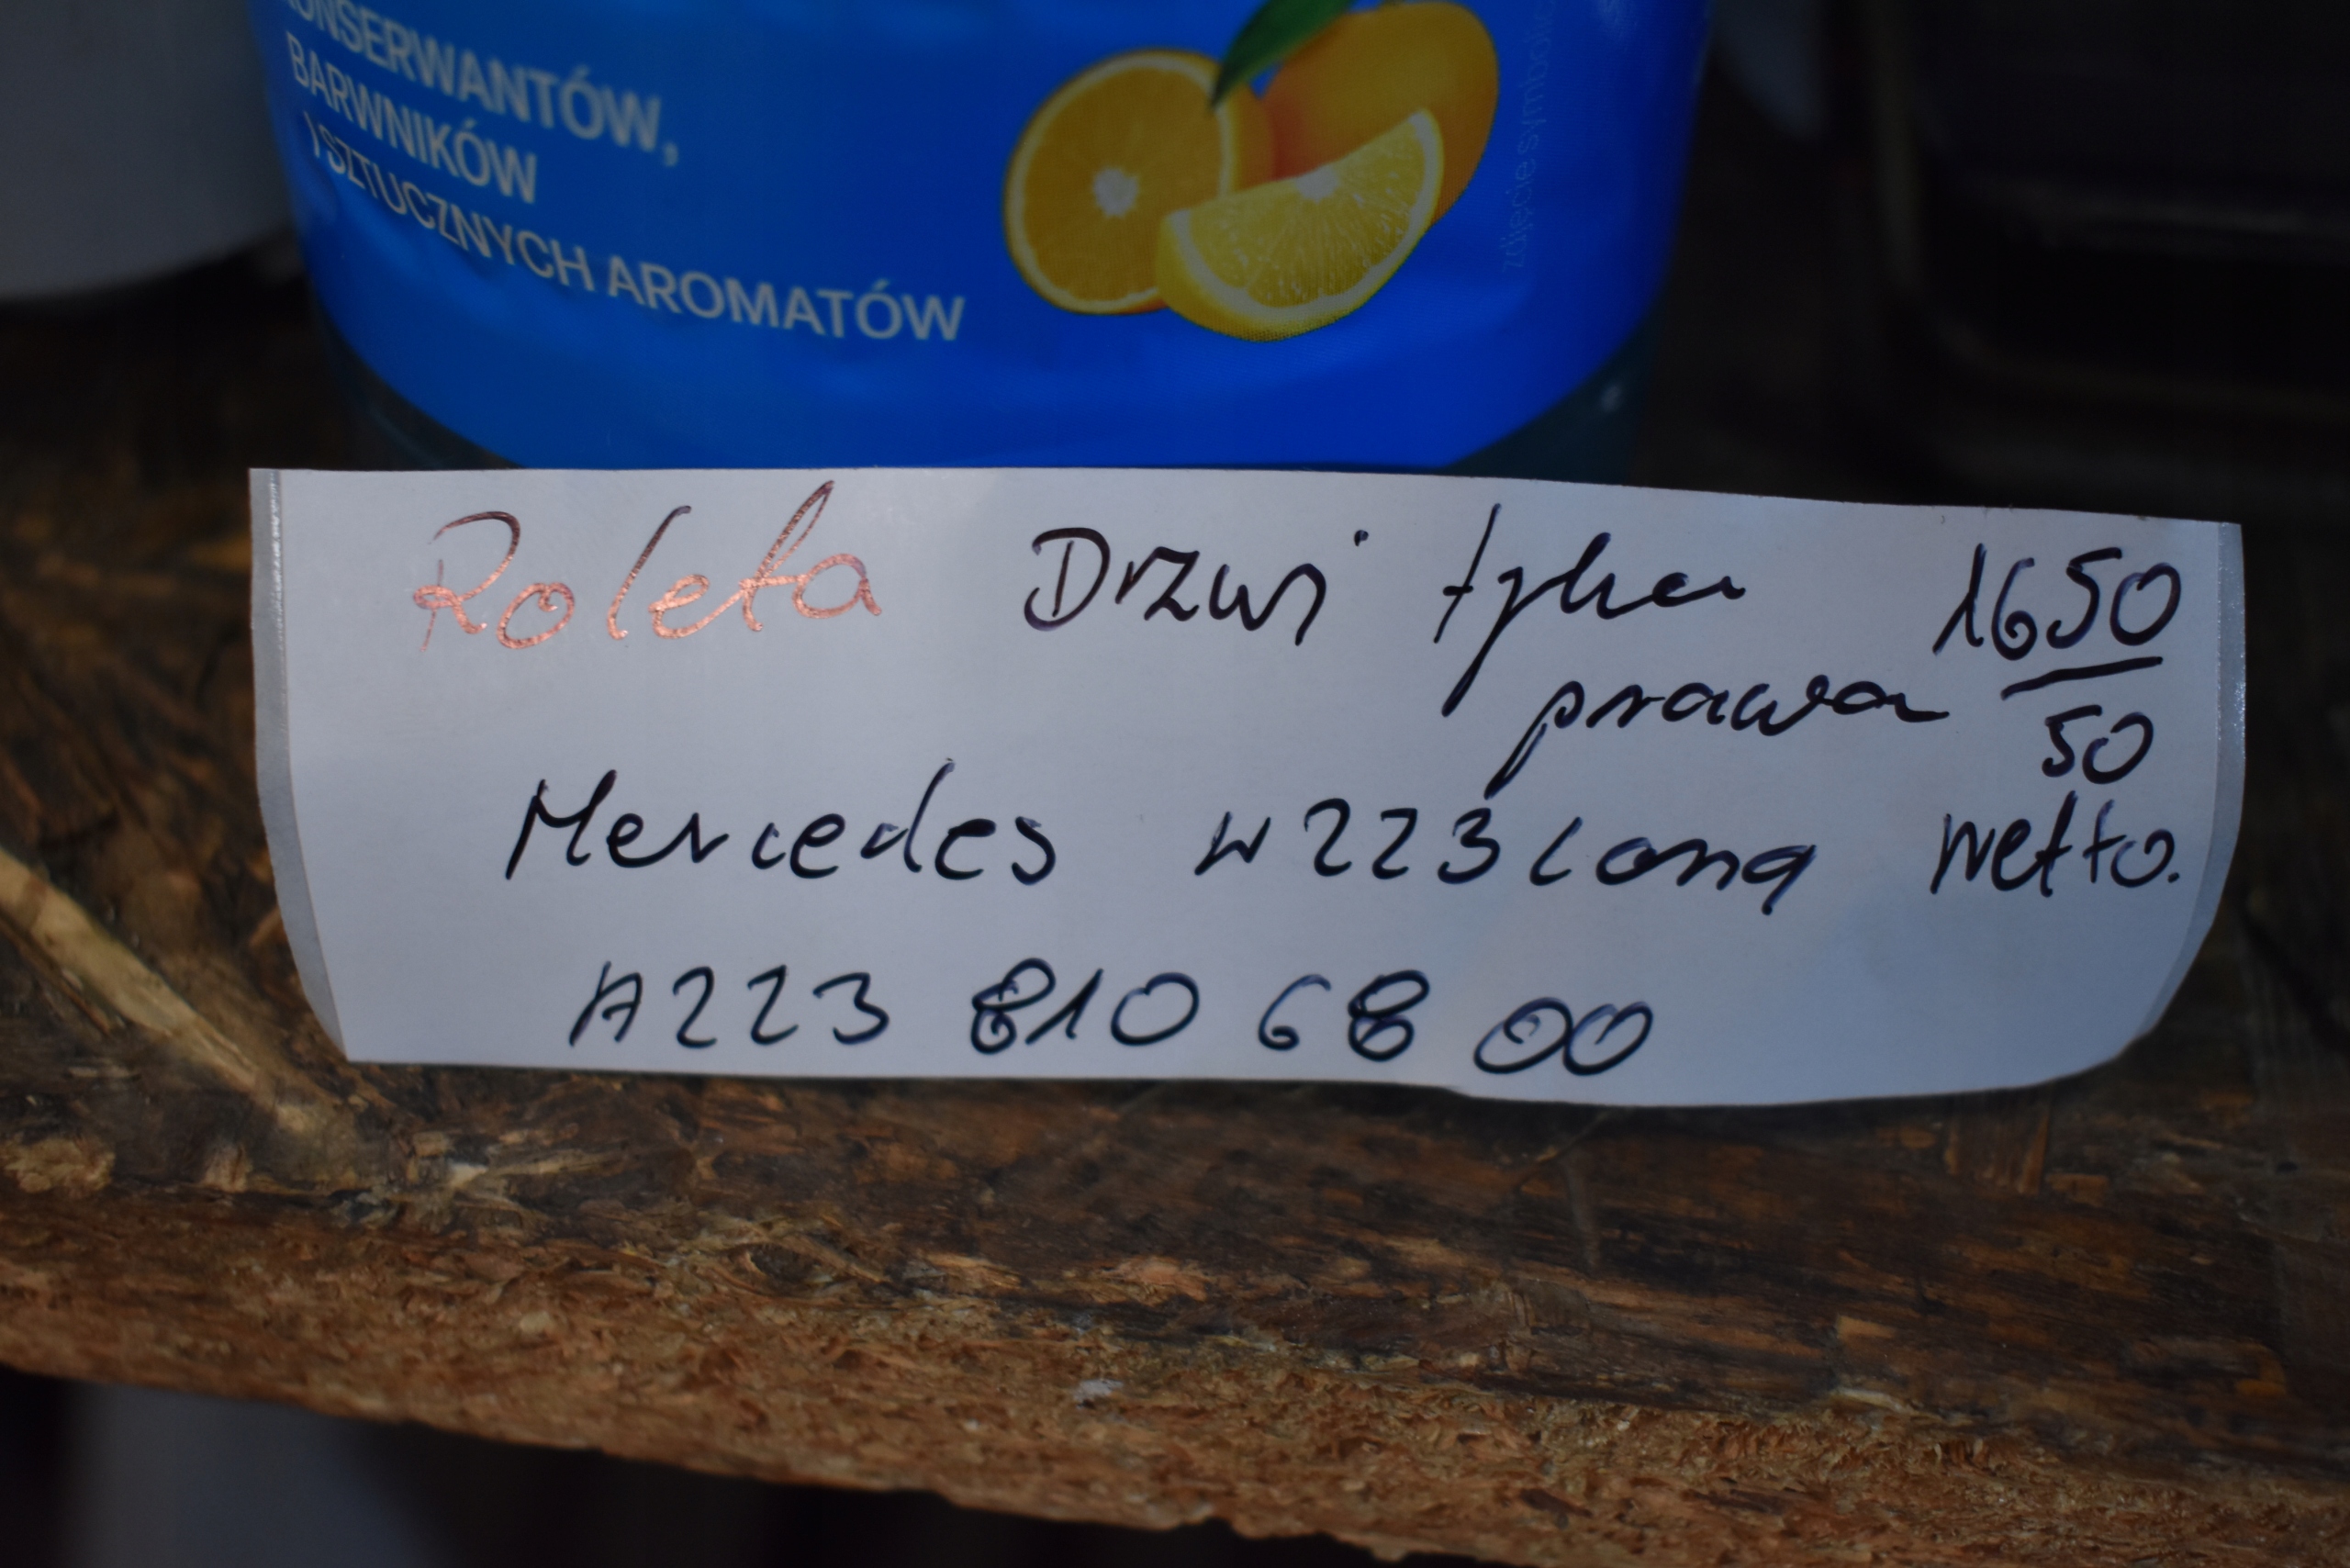 KONSERWANTÓW,
BARWNIKÓW
I SZTUCZNYCH AROMATÓW
zdjęcie symbolic
Roleta Drzwi tylna 1650
prawa 50
Mercedes W223 Long Netto.
A223 810 68 00